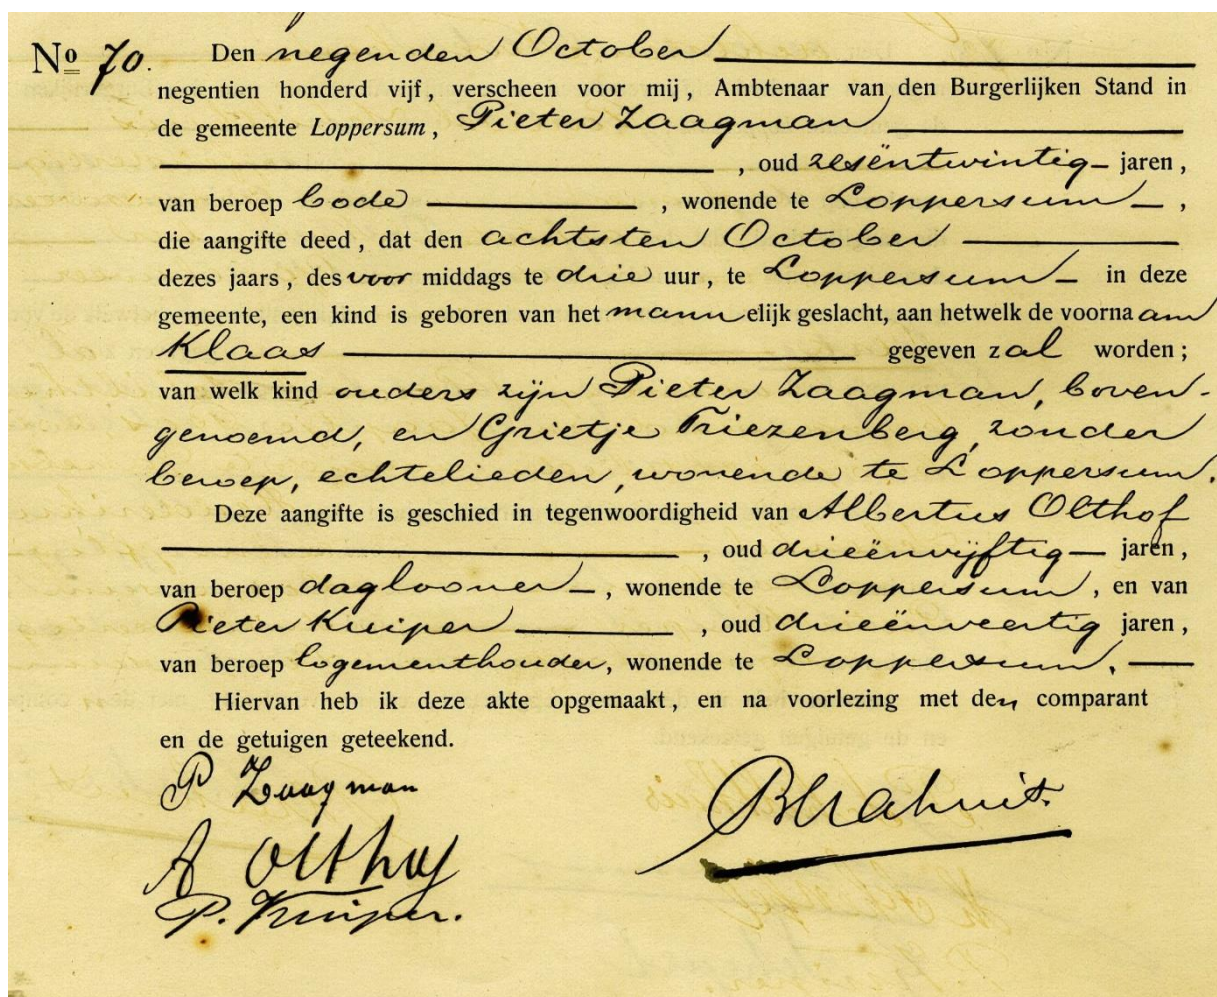 No 70. Den negenden October
negentien honderd vijf, verscheen voor mij, Ambtenaar van den Burgerlijken Stand in
de gemeente Loppersum, Pieter Zaagman
, oud zesëntwintig jaren,
van beroep bode, wonende te Loppersum,
die aangifte deed, dat den achtsten October
dezes jaars, des voor middags te drie uur, te Loppersum in deze
gemeente, een kind is geboren van het mannelijk geslacht, aan hetwelk de voornaam
Klaas gegeven zal worden;
van welk kind ouders zijn Pieter Zaagman, boven-
genoemd, en Grietje Triezenberg, zonder
beroep, echtelieden, wonende te Loppersum.
Deze aangifte is geschied in tegenwoordigheid van Albertus Olthof
, oud drieënvijftig jaren,
van beroep daglooner, wonende te Loppersum, en van
Pieter Kuiper, oud drieënveertig jaren,
van beroep logementhouder, wonende te Loppersum.
Hiervan heb ik deze akte opgemaakt, en na voorlezing met den comparant
en de getuigen geteekend.
P Zaagman
A Olthof
P. Kuiper.